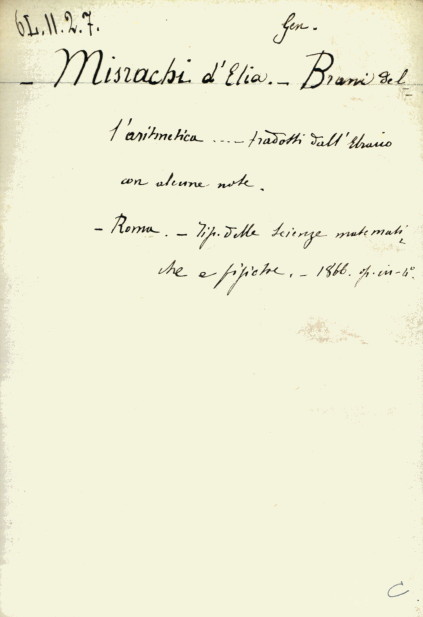 6L.11.2.7.
Gen.
- Misrachi d'Elia. - Brani del=
l'aritmetica .... - tradotti dall'Ebraico
con alcune note.
- Roma. - Tip. delle scienze matemati=
che e fisiche. - 1866. op. in-4°.
C